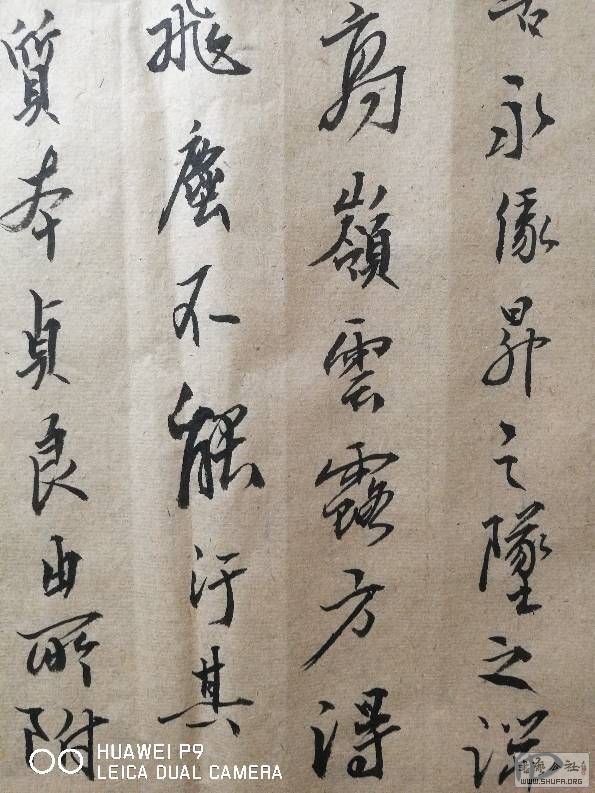 緣昇々墜之端
高嶺雲露方得
飛塵不能汙其
質本貞良由所附
HUAWEI P9
LEICA DUAL CAMERA
WWW.SHUFA.ORG